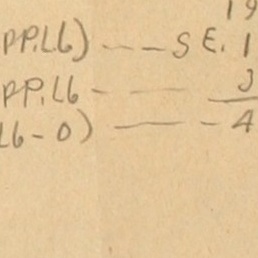 19
PP.L6) --- S E. 1
PP. L6 - — 3
L6 - 0) — - 4